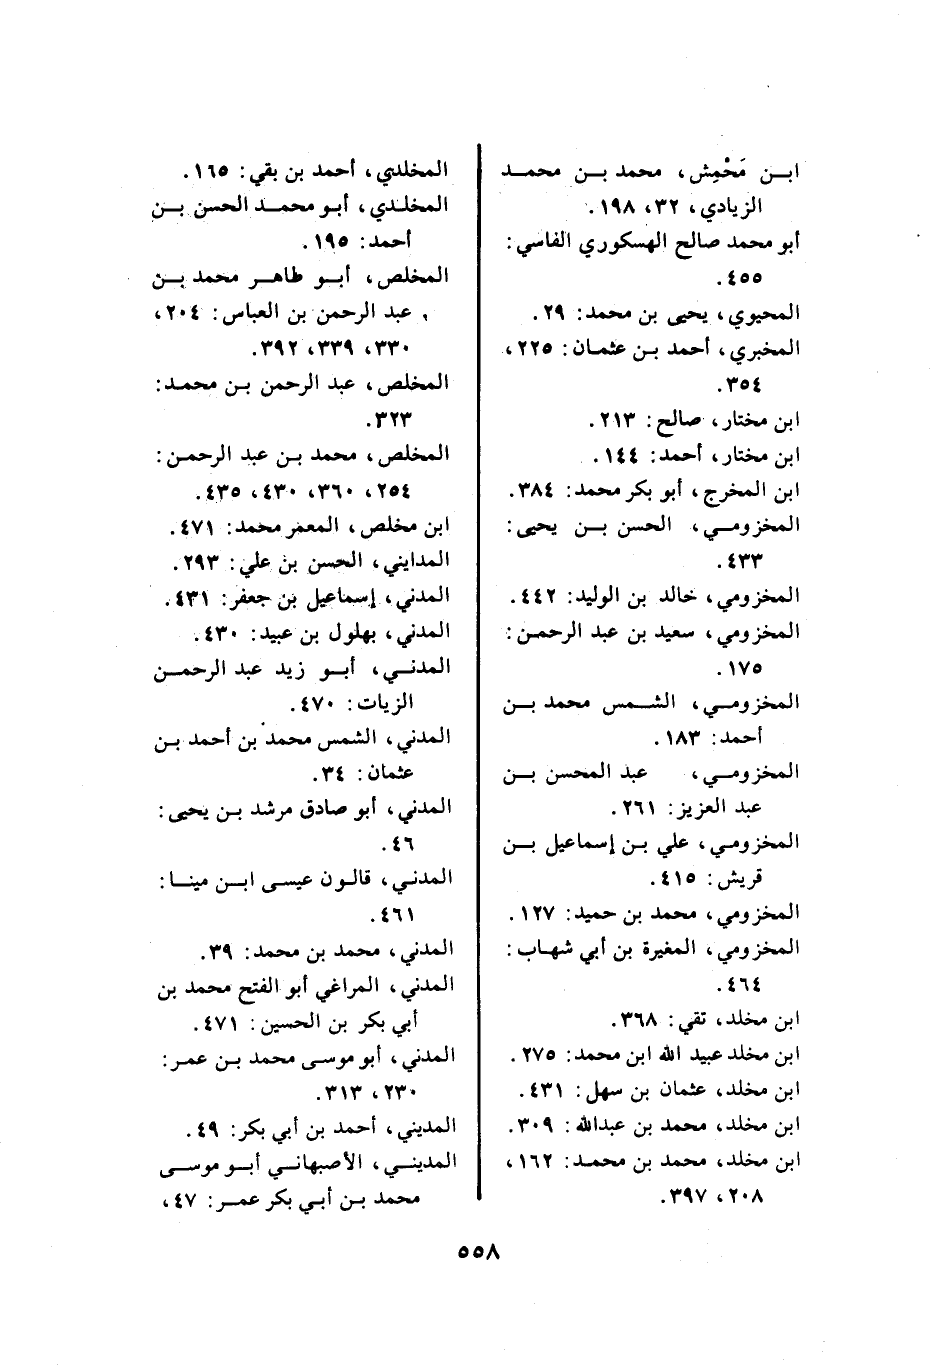 ابن مَحْمِش، محمد بن محمد
الزيادي، ٣٢، ١٩٨.
أبو محمد صالح الهسكوري الفاسي:
٤٥٥.
المحيوي، يحيى بن محمد: ٢٩.
المخبري، أحمد بن عثمان: ٢٢٥،
٣٥٤.
ابن مختار، صالح: ٢١٣.
ابن مختار، أحمد: ١٤٤.
ابن المخرج، أبو بكر محمد: ٣٨٤.
المخزومي، الحسن بن يحيى:
٤٣٣.
المخزومي، خالد بن الوليد: ٤٤٢.
المخزومي، سعيد بن عبد الرحمن:
١٧٥.
المخزومي، الشمس محمد بن
أحمد: ١٨٣.
المخزومي، عبد المحسن بن
عبد العزيز: ٢٦١.
المخزومي، علي بن إسماعيل بن
قريش: ٤١٥.
المخزومي، محمد بن حميد: ١٢٧.
المخزومي، المغيرة بن أبي شهاب:
٤٦٤.
ابن مخلد، تقي: ٣٦٨.
ابن مخلد عبيد الله ابن محمد: ٢٧٥.
ابن مخلد، عثمان بن سهل: ٤٣١.
ابن مخلد، محمد بن عبدالله: ٣٠٩.
ابن مخلد، محمد بن محمد: ١٦٢،
٢٠٨، ٣٩٧.
المخلدي، أحمد بن بقي: ١٦٥.
المخلدي، أبو محمد الحسن بن
أحمد: ١٩٥.
المخلص، أبو طاهر محمد بن
عبد الرحمن بن العباس: ٢٠٤،
٣٣٠، ٣٣٩، ٣٩٢.
المخلص، عبد الرحمن بن محمد:
٣٢٣.
المخلص، محمد بن عبد الرحمن:
٢٥٤، ٣٦٠، ٤٣٠، ٤٣٥.
ابن مخلص، المعمر محمد: ٤٧١.
المدايني، الحسن بن علي: ٢٩٣.
المدني، إسماعيل بن جعفر: ٤٣١.
المدني، بهلول بن عبيد: ٤٣٠.
المدني، أبو زيد عبد الرحمن
الزيات: ٤٧٠.
المدني، الشمس محمد بن أحمد بن
عثمان: ٣٤.
المدني، أبو صادق مرشد بن يحيى:
٤٦.
المدني، قالون عيسى ابن مينا:
٤٦١.
المدني، محمد بن محمد: ٣٩.
المدني، المراغي أبو الفتح محمد بن
أبي بكر بن الحسين: ٤٧١.
المدني، أبو موسى محمد بن عمر:
٢٣٠، ٣١٣.
المديني، أحمد بن أبي بكر: ٤٩.
المديني، الأصبهاني أبو موسى
محمد بن أبي بكر عمر: ٤٧،
٥٥٨